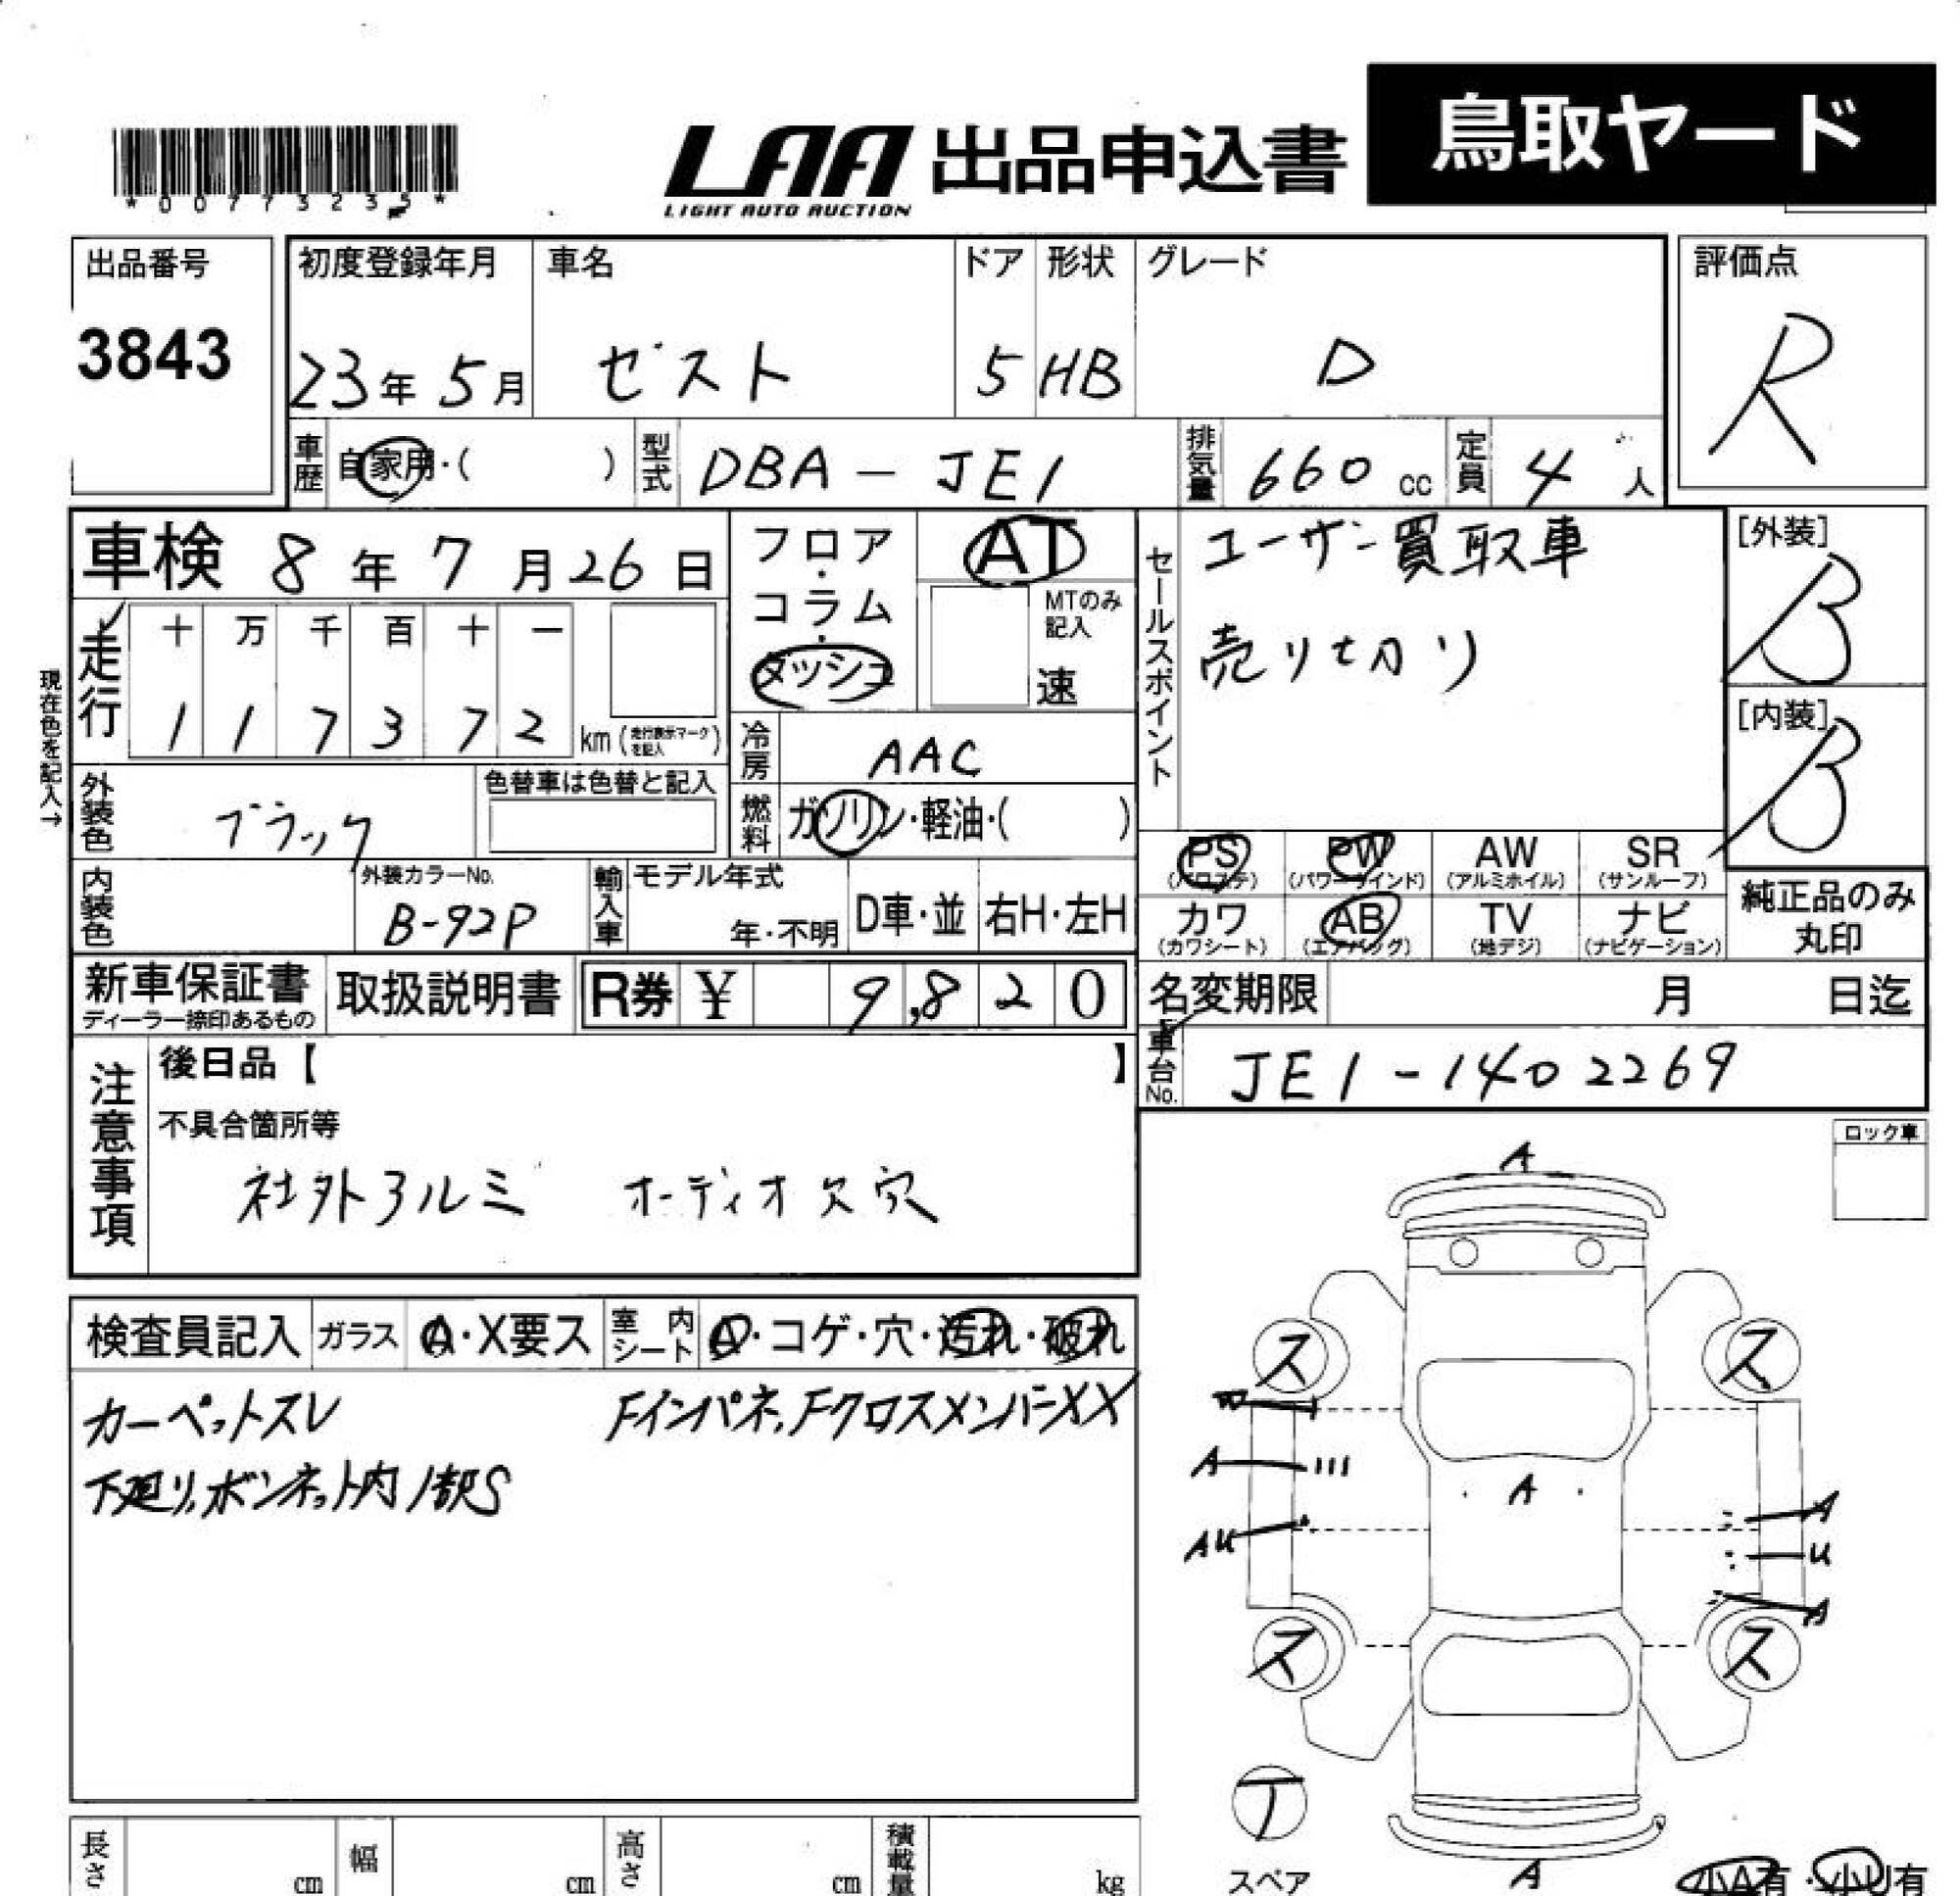 鳥取ヤード
LAA 出品申込書
LIGHT AUTO AUCTION
*00773235*
出品番号
3843
初度登録年月
23年 5月
車名
ゼスト
ドア
5
形状
HB
グレード
D
評価点
R
車歴
自家用・( )
型式
DBA-JE1
排気量
660 cc
定員
4 人
車検 8年 7月 26日
フロア・コラム・ダッシュ
AT
MTのみ記入
速
セールスポイント
ユーザー買取車
売り切り
[外装]
B
[内装]
B
現在色を記入→
走行
十 万 千 百 十 一
1 1 7 3 7 2 km (走行表示マークを記入)
冷房
AAC
燃料
ガソリン・軽油・( )
外装色
ブラック
色替車は色替と記入
内装色
外装カラーNo.
B-92P
輸入車
モデル年式
年・不明
D車・並
右H・左H
PS
(パワステ)
PW
(パワーウインド)
AW
(アルミホイル)
SR
(サンルーフ)
カワ
(カワシート)
AB
(エアバッグ)
TV
(地デジ)
ナビ
(ナビゲーション)
純正品のみ
丸印
新車保証書
ディーラー捺印あるもの
取扱説明書
R券 ¥ 9,820
名変期限 月 日迄
車台No.
JE1-1402269
注意事項
後日品【 】
不具合箇所等
社外アルミ オーディオ欠穴
ロック車
検査員記入
ガラス
A・X要ス
室内シート
A・コゲ・穴・汚れ・破れ
カーペットスレ Fインパネ、FクロスメンバーXX
下廻り、ボンネット内1部S
A
ス ス
W
A
A
A
AU
U
A
ス ス
T
スペア
A
小A有・小U有
長さ cm
幅 cm
高さ cm
積載量 kg